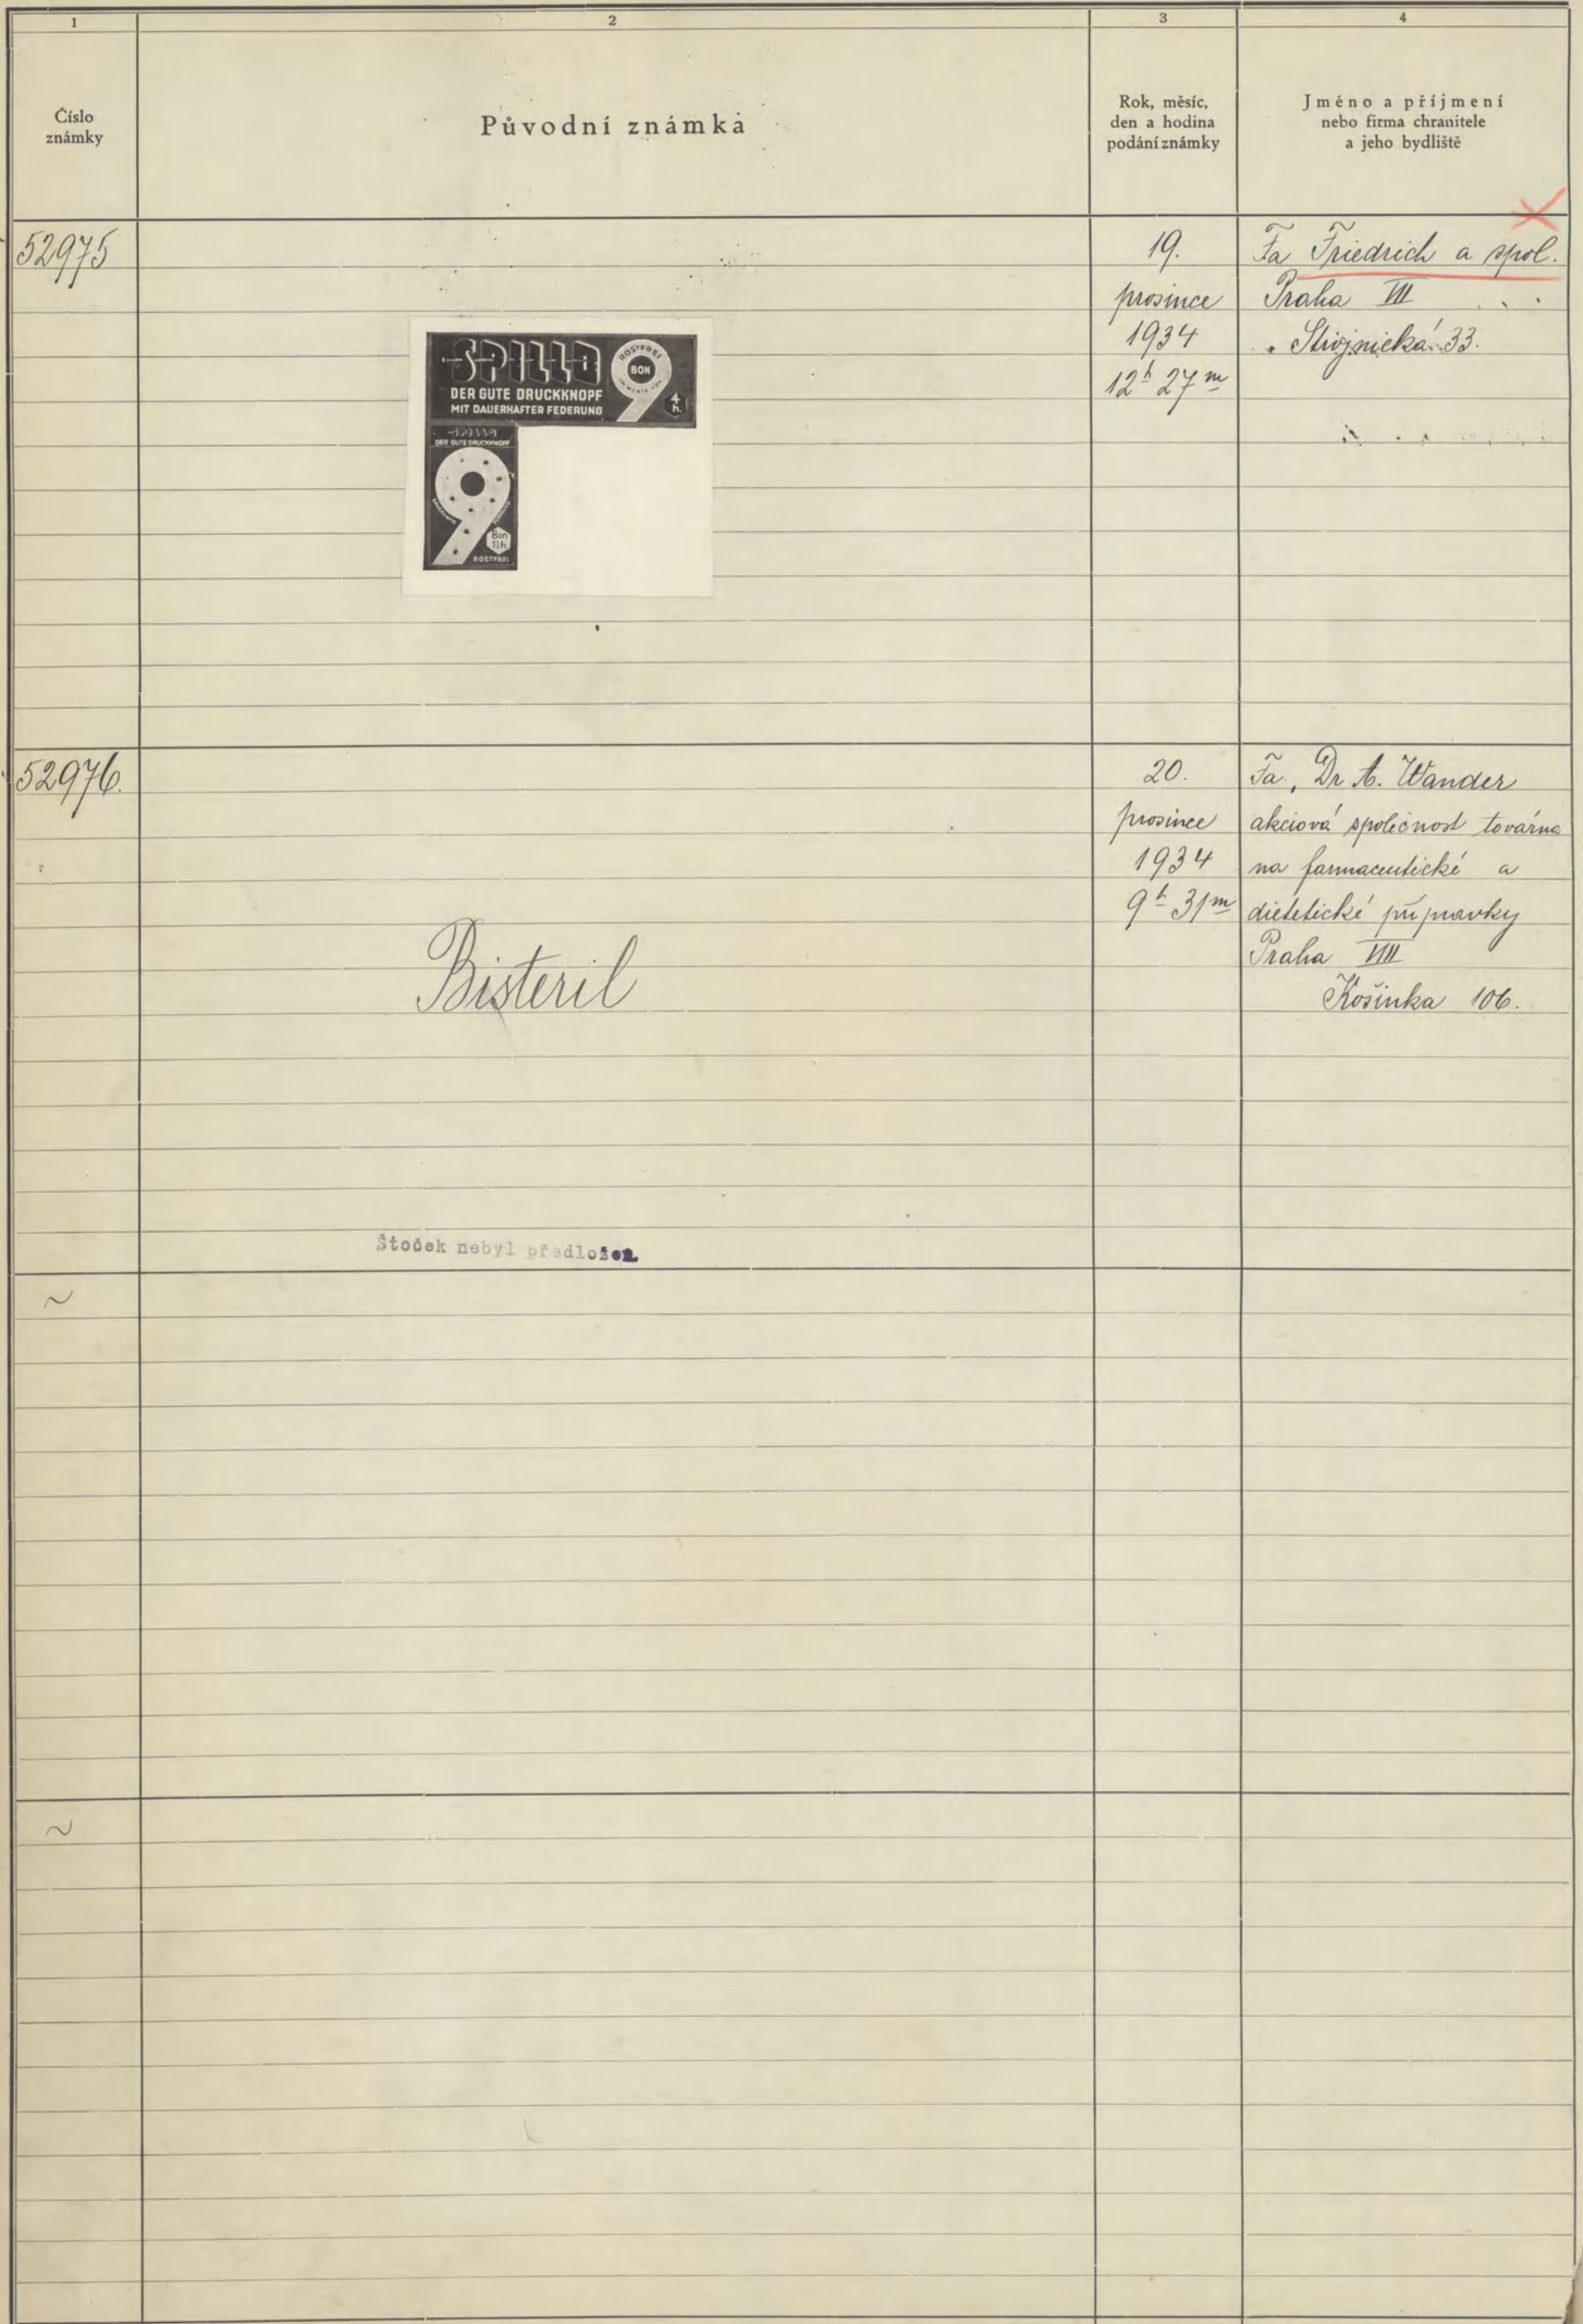 1
2
3
4
Číslo
známky
Původní známka
Rok, měsíc,
den a hodina
podání známky
Jméno a příjmení
nebo firma chranitele
a jeho bydliště
52975
SPILLO
DER GUTE DRUCKKNOPF
MIT DAUERHAFTER FEDERUNG
ROSTFREI
BON
9
4
h.
DER GUTE DRUCKKNOPF
9
Bon
11h
ROSTFREI
19.
prosince
1934
12h 27m
Fa Friedrich a spol.
Praha VII
Strojnická 33.
52976.
Bisteril
Štoček nebyl předložen
20.
prosince
1934
9h 31m
Fa, Dr A. Wander
akciová společnost továrna
na farmaceutické a
dietetické přípravky
Praha VIII
Košinka 106.
~
~